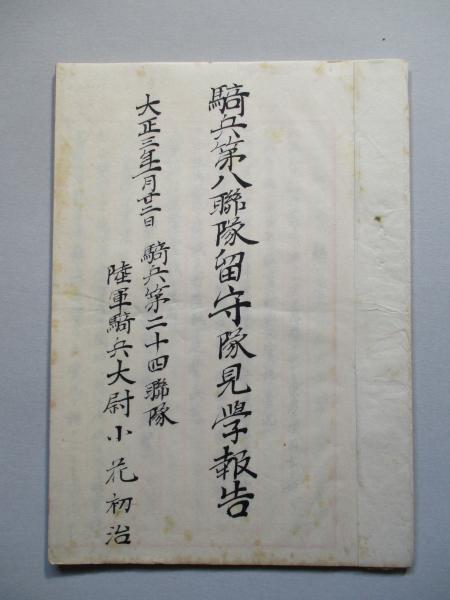 騎兵第八聯隊留守隊見學報告
大正三年一月廿二日 騎兵第二十四聯隊
陸軍騎兵大尉小花初治